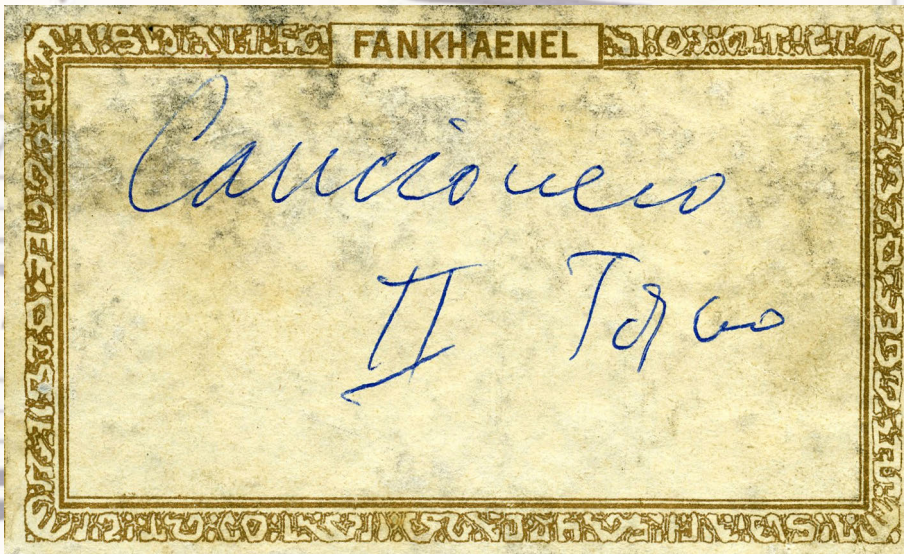 FANKHAENEL
Cancionero
II Tomo